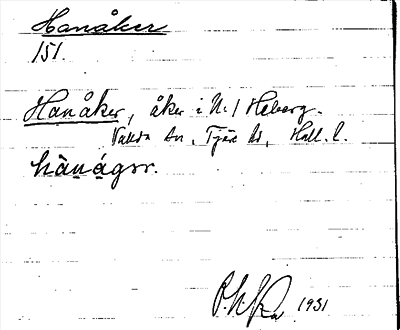 Hanåker
151.
Hanåker, åker i N. / Heberg.
Valda sn, Fjäre hd, Hall. l.
hànágər.
1931